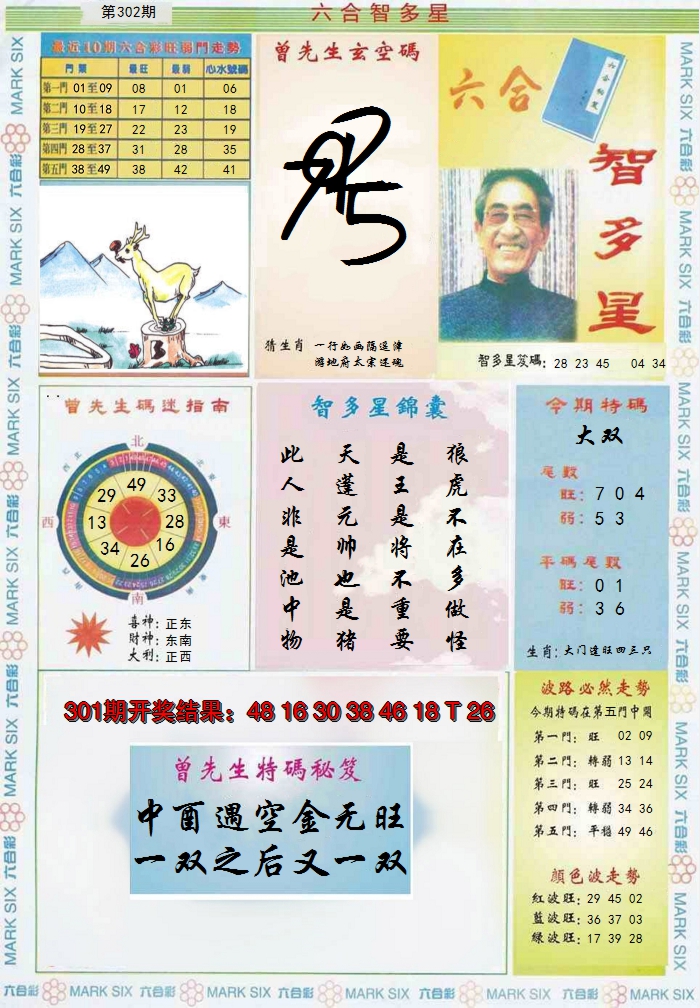 第302期
六合智多星
最近10期六合彩旺弱門走勢
門類 最旺 最弱 心水號碼
第一門 01至09 08 01 06
第二門 10至18 17 12 18
第三門 19至27 22 23 19
第四門 28至37 31 28 35
第五門 38至49 38 42 41
曾先生玄空碼
猜生肖
一行如画隔遥津
游地府太宗还魂
六合
智多星
智多星笈碼: 28 23 45 04 34
曾先生碼迷指南
北
西北
東北
西
東
西南
東南
南
49
29 33
13 28
34 16
26
喜神:正东
财神:东南
大利:正西
智多星錦囊
狼虎不在多做怪
是王是将不重要
天蓬元帅也是猪
此人非是池中物
今期特碼
大双
尾數
旺: 7 0 4
弱: 5 3
平碼尾數
旺: 0 1
弱: 3 6
生肖: 大门逢旺四三只
301期开奖结果：48 16 30 38 46 18 T 26
曾先生特碼秘笈
中酉遇空金无旺
一双之后又一双
波路必然走勢
今期特碼在第五門中開
第一門: 旺 02 09
第二門: 轉弱 13 14
第三門: 旺 25 24
第四門: 轉弱 34 36
第五門: 平穩 49 46
顏色波走勢
紅波旺: 29 45 02
藍波旺: 36 37 03
綠波旺: 17 39 28
六合彩 MARK SIX